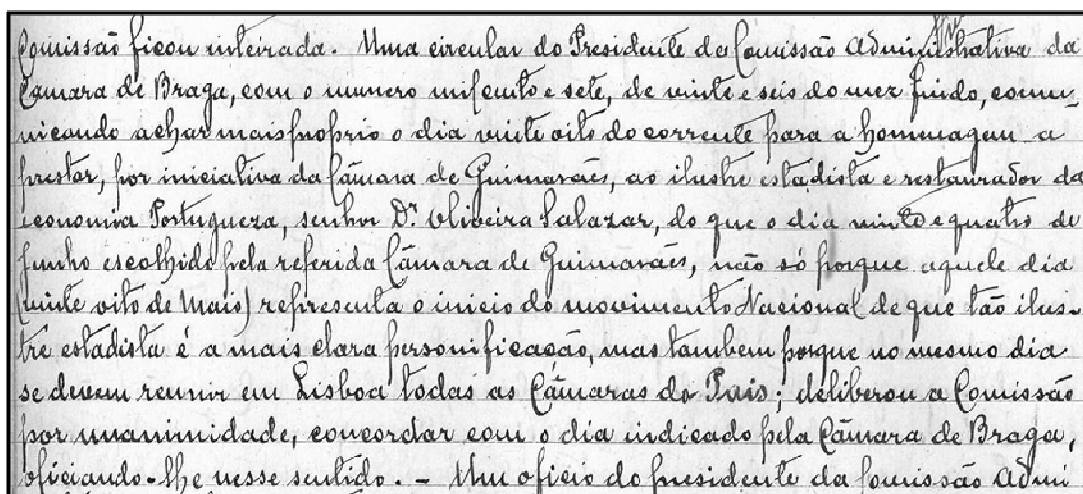 Comissão ficou inteirada. Uma circular do Presidente da Comissão Administrativa da
Câmara de Braga, com o numero mil cento e sete, de vinte e seis do mez findo, comu-
nicando achar mais proprio o dia vinte oito do corrente para a homenagem a
prestar, por iniciativa da Câmara de Guimarães, ao ilustre estadista e restaurador da
economia Portugueza, senhor Dr. Oliveira Salazar, do que o dia vinte e quatro de
Junho escolhido pela referida Câmara de Guimarães, não só porque aquele dia
(vinte oito de Maio) representa o inicio do movimento Nacional de que tão ilus-
tre estadista é a mais clara personificação, mas tambem porque no mesmo dia
se devem reunir em Lisboa todas as Câmaras do Pais; deliberou a Comissão
por unanimidade, concordar com o dia indicado pela Câmara de Braga,
oficiando-lhe nesse sentido. - Um oficio do presidente da Comissão Admi